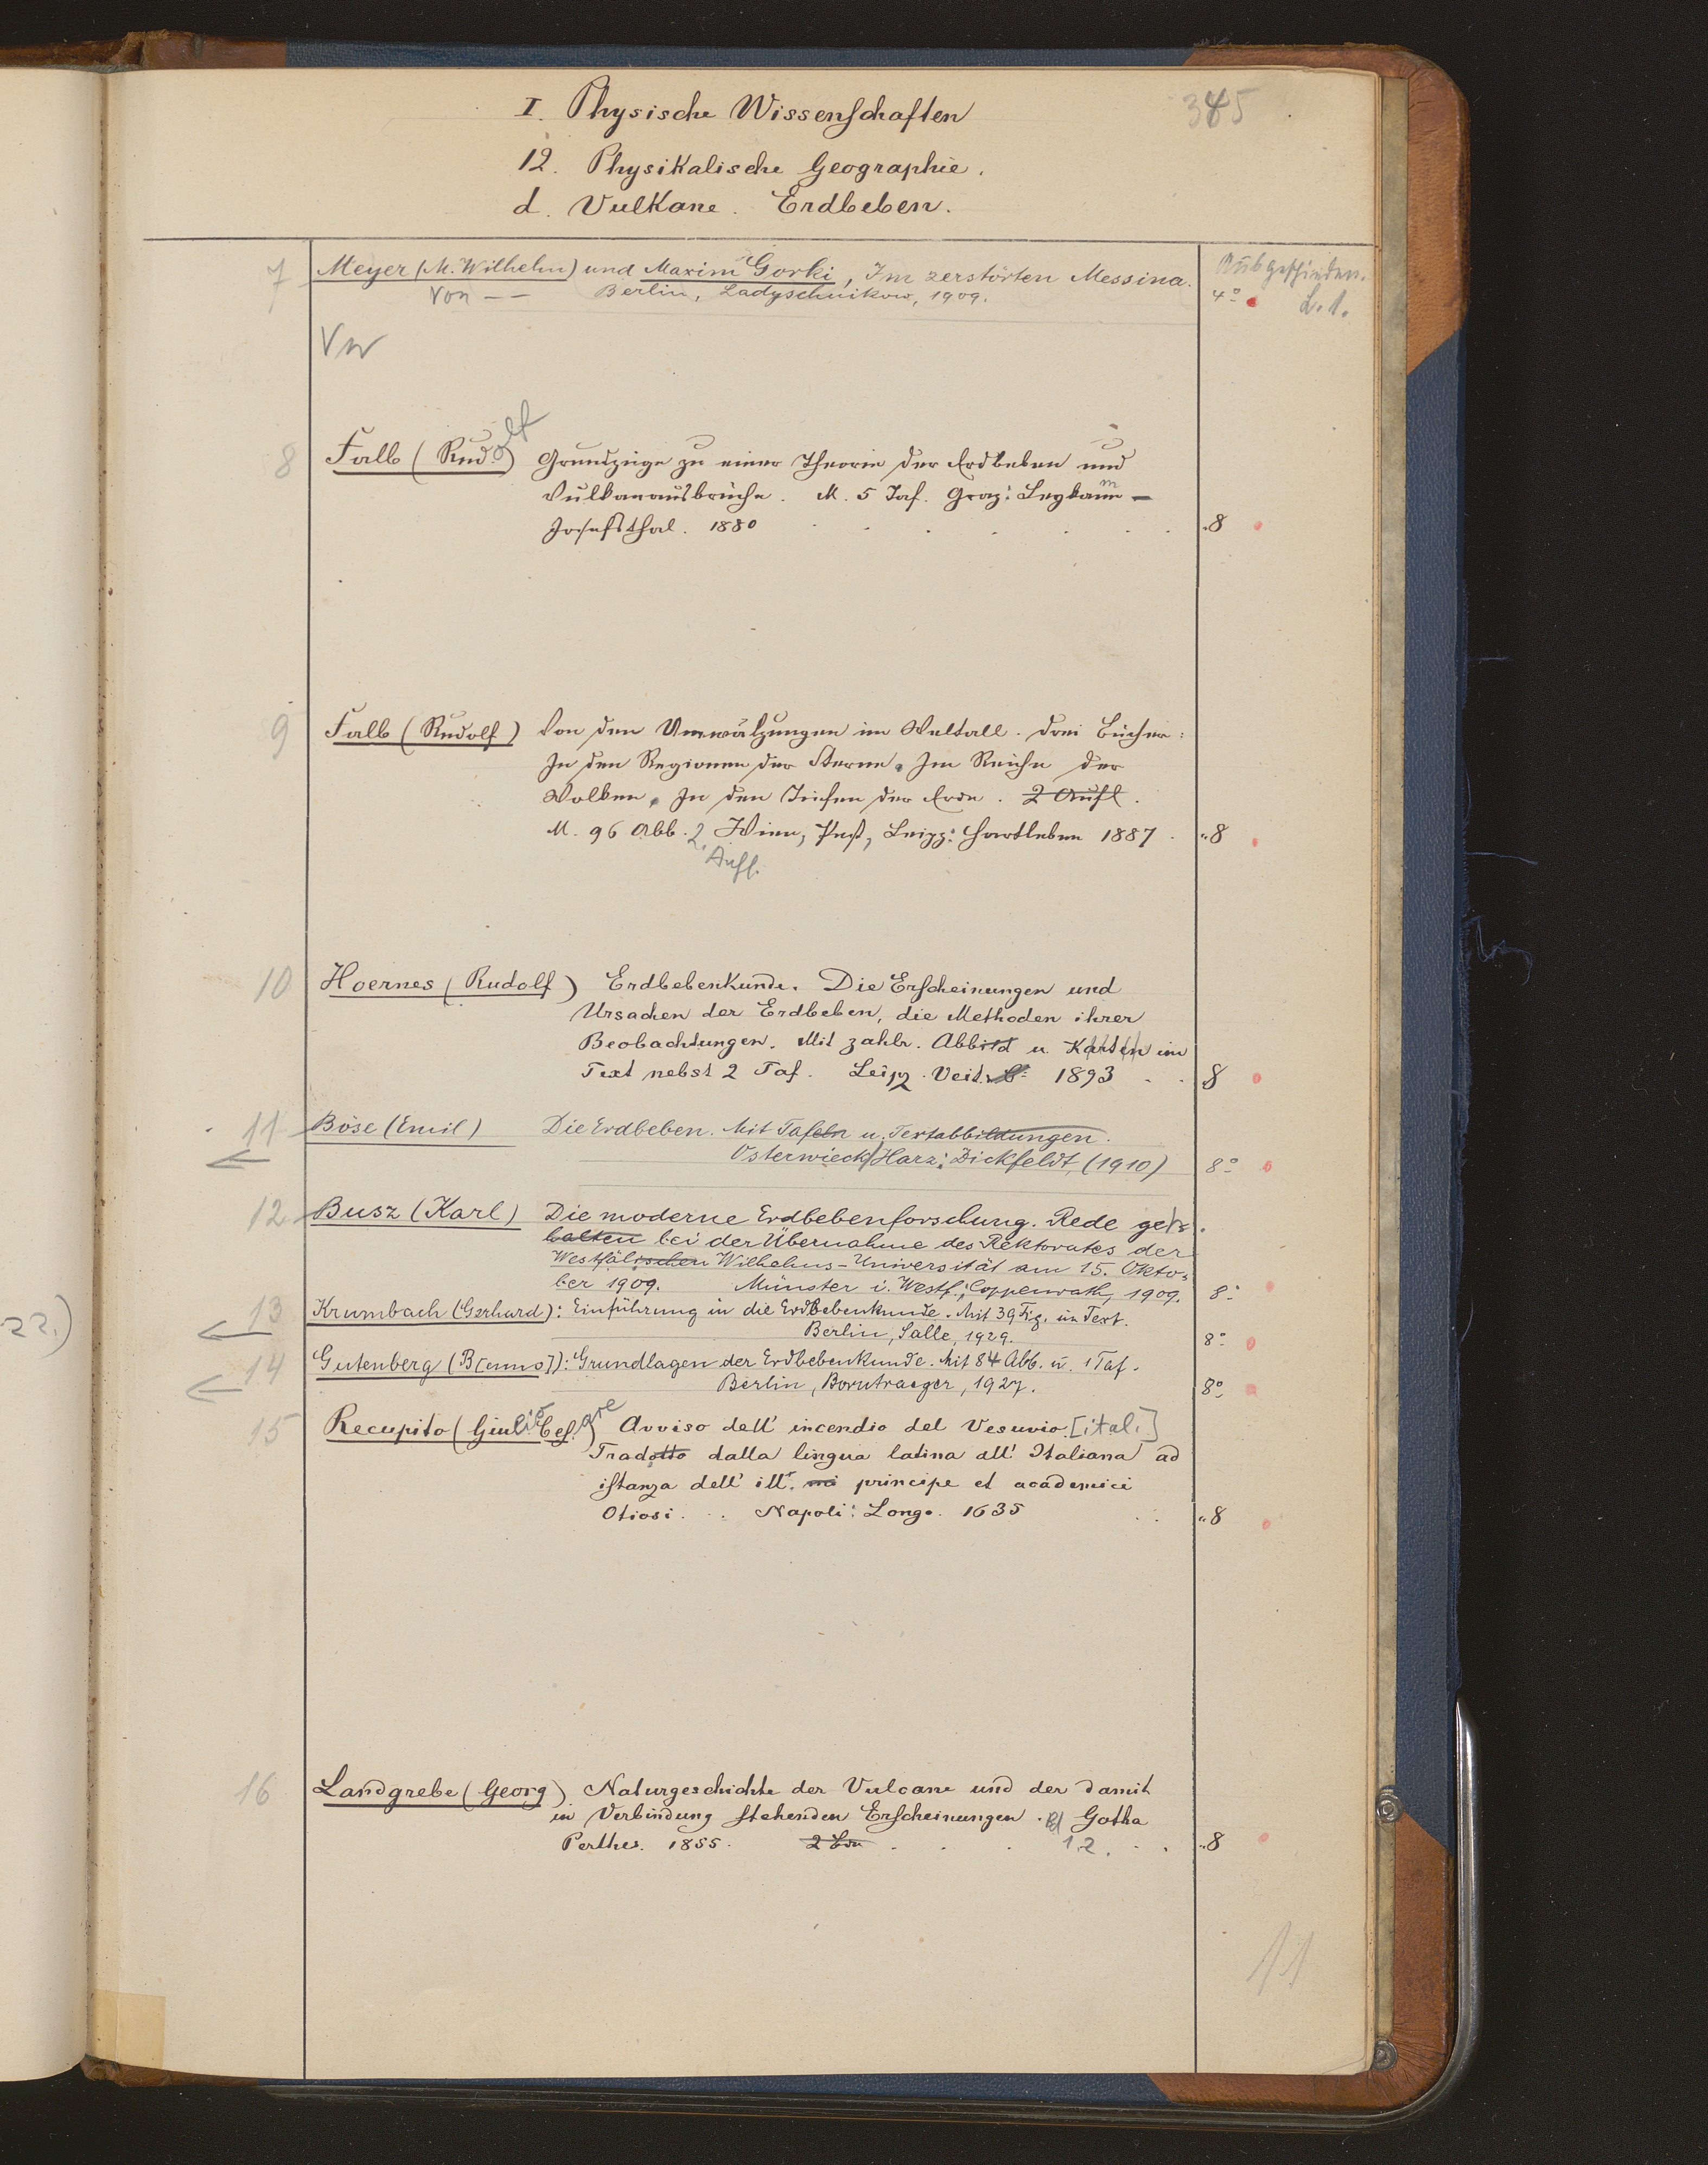 345
I. Physische Wissenschaften
12. Physikalische Geographie.
d. Vulkane. Erdbeben.
7 Meyer (M. Wilhelm) und Maxim Gorki, Im zerstörten Messina. Ausgeschieden.
Von — — Berlin, Ladyschnikow, 1909. 4° L. 1.
Vw
8 Falb (Rudolf) Grundzüge zu einer Theorie der Erdbeben und
Vulkanausbrüche. M. 5 Taf. Graz: Leykam-
Josefsthal. 1880 8
9 Falb (Rudolf) Von den Umwälzungen im Weltall. Drei Bücher:
In den Regionen der Sterne. Im Reiche der
Wolken. In den Tiefen der Erde. 2 Aufl.
M. 96 Abb. 2. Wien, Pest, Leipz: Hartleben 1887 8
Aufl.
10 Hoernes (Rudolf) Erdbebenkunde. Die Erscheinungen und
Ursachen der Erdbeben, die Methoden ihrer
Beobachtungen. Mit zahlr. Abbild u. Karten im
Text nebst 2 Taf. Leipz. Veit 1893 8
11 Böse (Emil) Die Erdbeben. Mit Tafeln u. Textabbildungen.
Osterwieck/Harz: Dickfeldt, (1910) 8°
12 Busz (Karl) Die moderne Erdbebenforschung. Rede geh.
halten bei der Übernahme des Rektorates der
Westfälischen Wilhelms-Universität am 15. Okto=
ber 1909. Münster i. Westf.: Coppenrath, 1909. 8°
22.)
13 Krumbach (Gerhard): Einführung in die Erdbebenkunde. Mit 39 Fig. im Text.
Berlin, Salle, 1929. 8°
14 Gutenberg (B[enno]): Grundlagen der Erdbebenkunde. Mit 84 Abb. u. 1 Taf.
Berlin, Borntraeger, 1927. 8°
15 Recupito (Giulio Cesare) Avviso dell' incendio del Vesuvio. [ital.]
Tradotto dalla lingua latina all' Italiana ad
istanza dell' ill. mi principe et academici
Otiosi. Napoli: Longo. 1635 8
16 Landgrebe (Georg) Naturgeschichte der Vulcane und der damit
in Verbindung stehenden Erscheinungen. Bd Gotha
Perthes. 1855. 2 Bde 1.2. 8
11